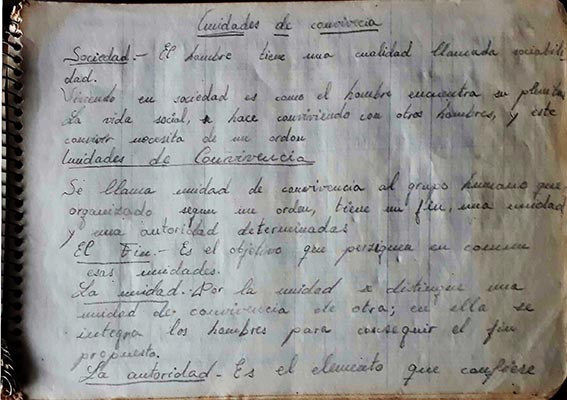 Unidades de convivecia
Sociedad.- El hombre tiene una cualidad llamada sociabili-
dad.
Viviendo en sociedad es como el hombre encuentra su plenitu
La vida social, se hace conviviendo con otros hombres, y este
convivir necesita de un orden
Unidades de Convivencia
Se llama unidad de convivencia al grupo humano que,
organizado segun un orden, tiene un fin, una unidad
y una autoridad determinadas
El Fin.- Es el objetivo que persiguen en comun
esas unidades.
La unidad.- Por la unidad se distingue una
unidad de convivencia de otra; en ella se
integra los hombres para conseguir el fin
propuesto.
La autoridad - Es el elemento que confiese